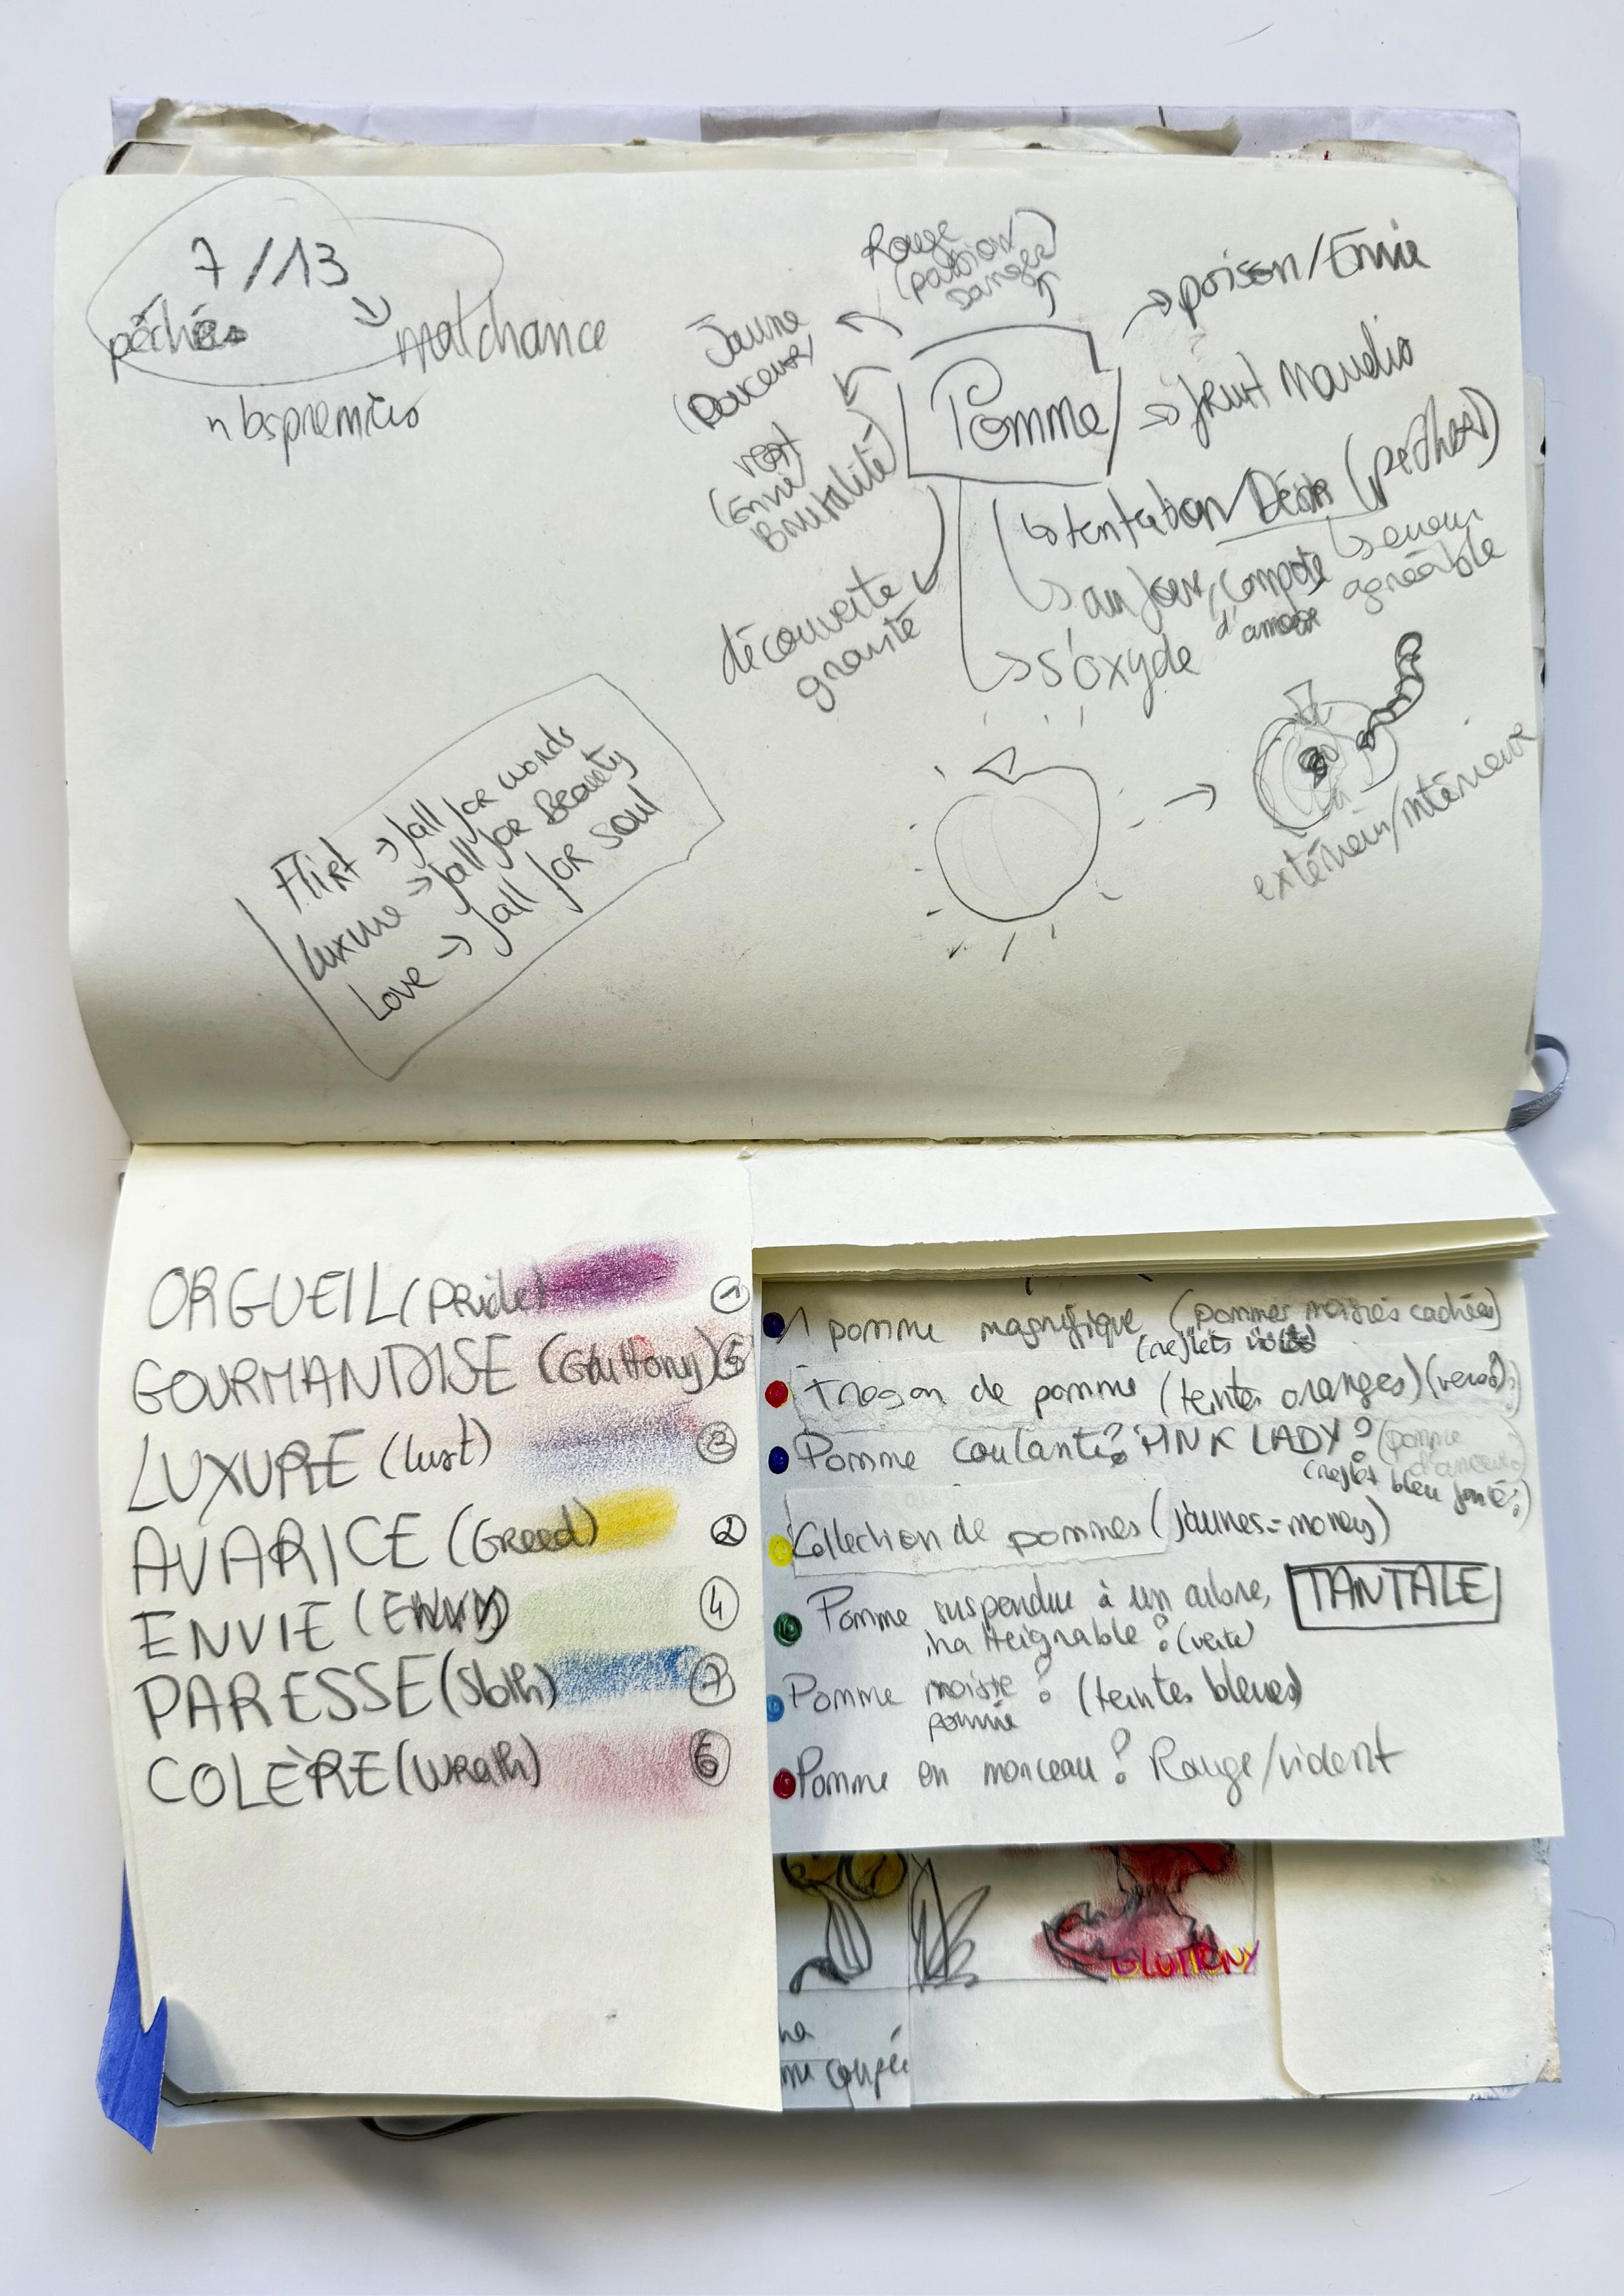 7/13
péchés
malchance
nbs premiers
Rouge
(passion
danger)
Jaune
(Douceur)
vert
(Envie
Brutalité)
découverte
gravité
Pomme
poison/Envie
fruit Maudit
tentation/Désir (péché)
erreur
agréable
au four, compote
d'amour
s'oxyde
extérieur/intérieur
Flirt → fall for words
Luxure → fall for Beauty
Love → fall for soul
ORGUEIL (Pride) 1
GOURMANDISE (Gluttony) 5
LUXURE (lust) 3
AVARICE (Greed) 2
ENVIE (Envy) 4
PARESSE (Sloth) 7
COLÈRE (Wrath) 6
1 pomme magnifique (pommes moisies cachées)
(reflets violets)
Trognon de pomme (teintes oranges)
Pomme coulante? PINK LADY? (pomme
d'amour)
(reflet bleu foncé?)
Collection de pommes (jaunes = money)
Pomme suspendue à un arbre,
inatteignable? (verte)
TANTALE
Pomme moisie? (teintes bleues)
pourrie
Pomme en morceau? Rouge/violent
GLUTTONY
na
me coupée